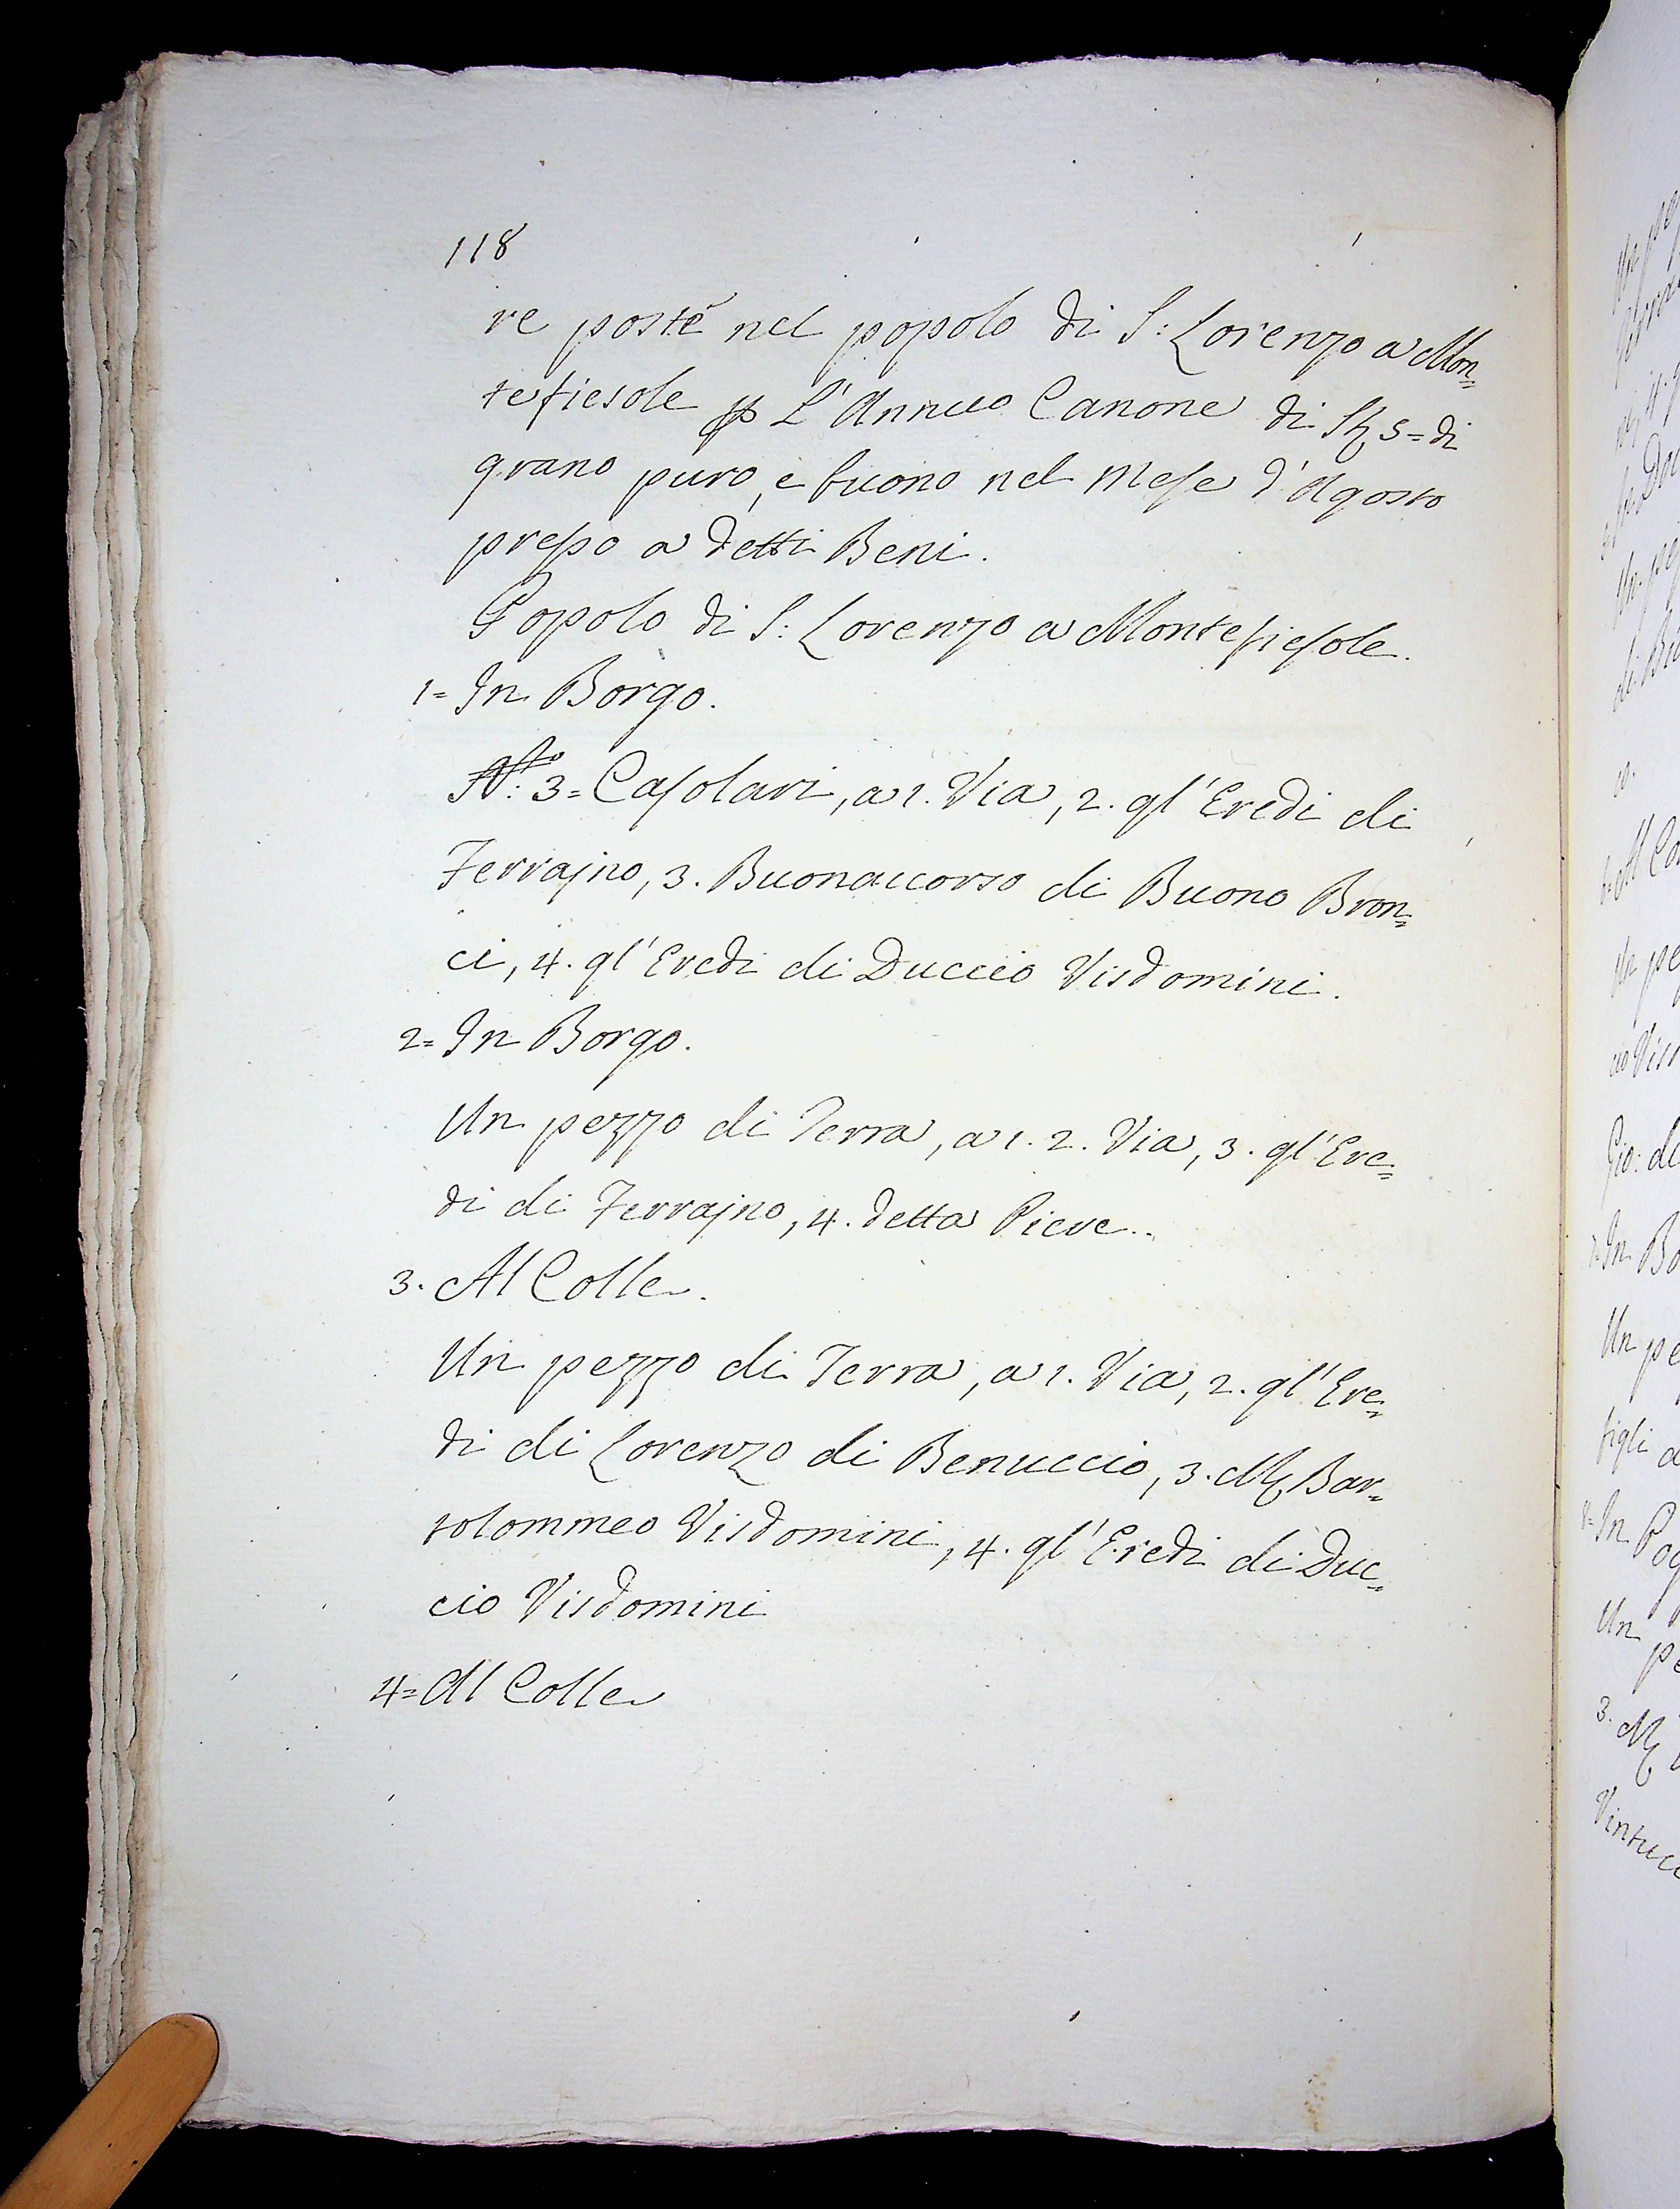 118
re poste nel popolo di S: Lorenzo a Mon=
tefiesole p L'Annuo Canone di S 5= di
grano puro, e buono nel Mese d'Agosto
presso a detti Beni.
Popolo di S: Lorenzo a Montefiesole.
1= In Borgo.
N:º 3= Casolari, a 1. Via, 2. gl'Eredi di
Ferrajno, 3. Buonaccorso di Buono Bron=
ci, 4. gl'Eredi di Duccio Visdomini.
2= In Borgo.
Un pezzo di Terra, a 1. 2. Via, 3. gl'Ere=
di di Ferrajno, 4. detta Pieve..
3. Al Colle.
Un pezzo di Terra, a 1. Via, 2. gl'Ere=
di di Lorenzo di Benuccio, 3. M Bar=
tolommeo Visdomini, 4. gl'Eredi di Duc=
cio Visdomini
4= Al Colle